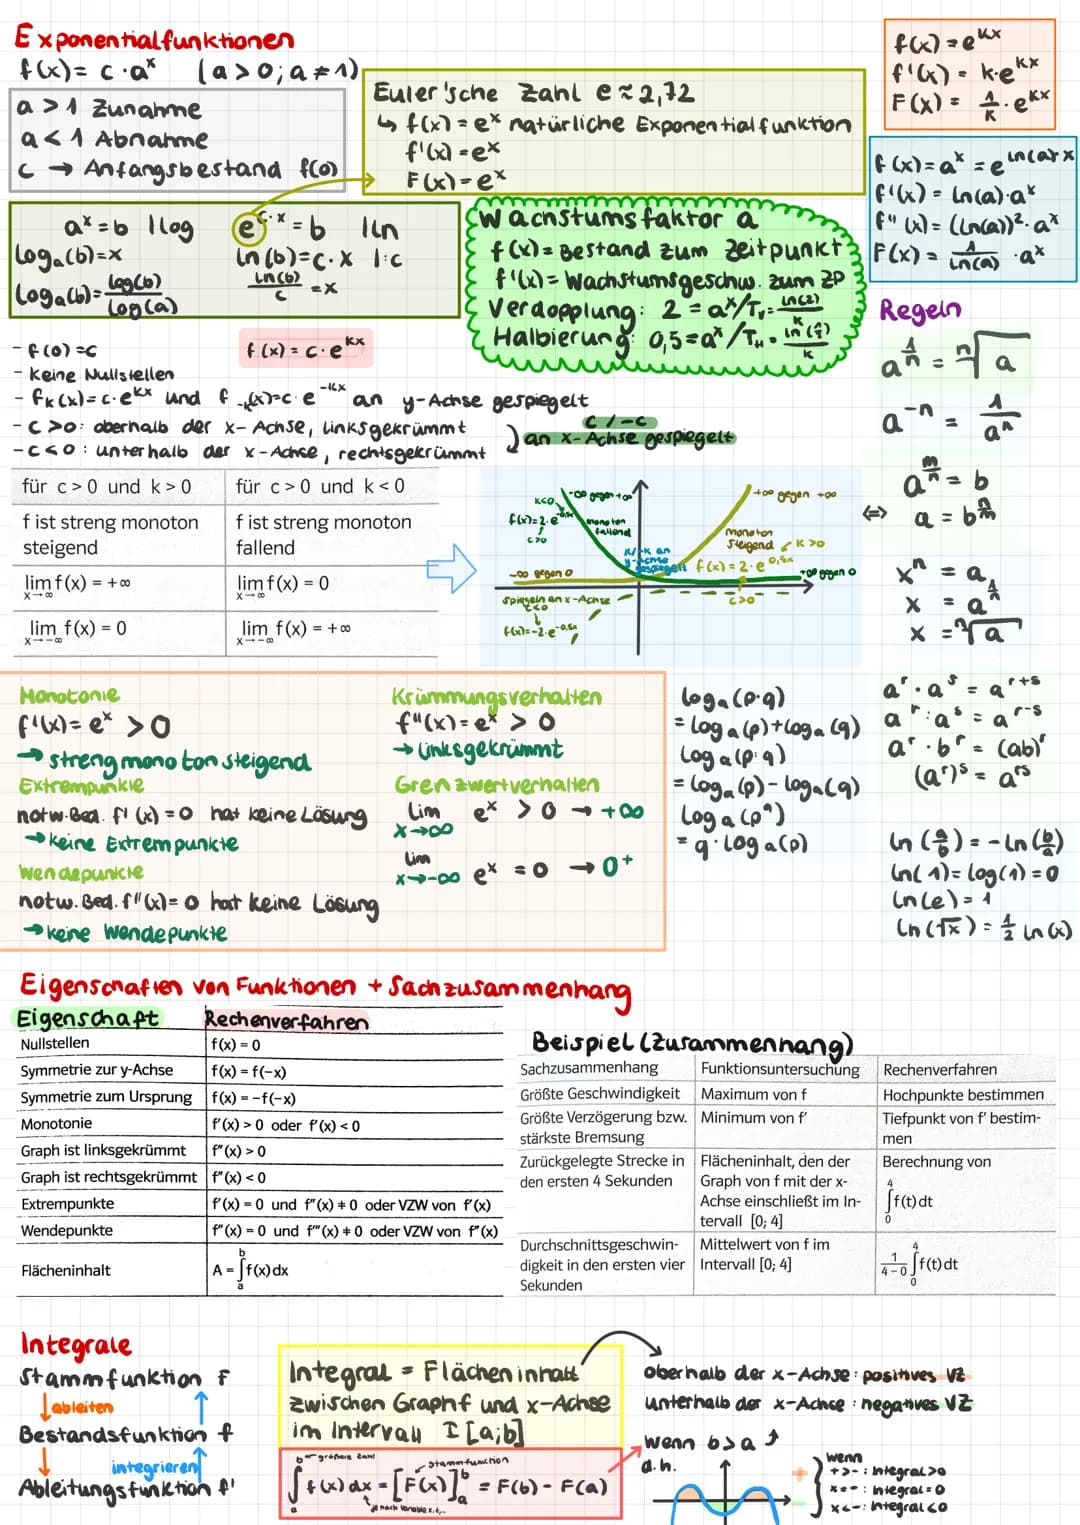 Exponentialfunktionen
f(x) = c · aˣ (a > 0; a ≠ 1)
a > 1 Zunahme
a < 1 Abnahme
c → Anfangsbestand f(0)
Euler'sche Zahl e ≈ 2,72
↳ f(x) = eˣ natürliche Exponentialfunktion
f'(x) = eˣ
F(x) = eˣ
f(x) = e^(kx)
f'(x) = k·e^(kx)
F(x) = 1/k · e^(kx)
f(x) = aˣ = e^(ln(a)·x)
f'(x) = ln(a)·aˣ
f"(x) = (ln(a))²·aˣ
F(x) = 1/ln(a) · aˣ
aˣ = b | log
logₐ(b) = x
logₐ(b) = log(b)/log(a)
e^(c·x) = b | ln
ln(b) = c·x |:c
ln(b)/c = x
Wachstumsfaktor a
f(x) = Bestand zum Zeitpunkt
f'(x) = Wachstumsgeschw. zum ZP
Verdopplung: 2 = aˣ / Tᵥ = ln(2)/k
Halbierung: 0,5 = aˣ / T_H = ln(½)/k
- f(0) = c
f(x) = c·e^(kx)
- keine Nullstellen
- fₖ(x) = c·e^(kx) und f₋ₖ(x) = c·e^(-kx) an y-Achse gespiegelt
- c > 0: oberhalb der x-Achse, linksgekrümmt
- c < 0: unterhalb der x-Achse, rechtsgekrümmt
c / -c
an x-Achse gespiegelt
für c > 0 und k > 0 für c > 0 und k < 0
f ist streng monoton steigend f ist streng monoton fallend
lim f(x) = +∞ x→∞ lim f(x) = 0 x→∞
lim f(x) = 0 x→-∞ lim f(x) = +∞ x→-∞
k<0
-∞ gegen +∞
f(x) = 2·e^(-0,5x)
c>0
monoton
fallend
k/-k an
y-Achse
gespiegelt
+∞ gegen +∞
monoton
steigend
k>0
f(x) = 2·e^(0,5x)
-∞ gegen 0
+∞ gegen 0
spiegeln an x-Achse
c<0
f(x) = -2·e^(-0,5x)
c>0
Regeln
a^(1/n) = ⁿ√a
a⁻ⁿ = 1/aⁿ
a^(m/n) = b
⇔ a = b^(n/m)
xⁿ = a
x = a^(1/n)
x = ⁿ√a
aʳ · aˢ = aʳ⁺ˢ
aʳ : aˢ = aʳ⁻ˢ
aʳ · bʳ = (ab)ʳ
(aʳ)ˢ = aʳˢ
ln(a/b) = -ln(b/a)
ln(1) = log(1) = 0
ln(e) = 1
ln(√x) = ½ ln(x)
Monotonie
f'(x) = eˣ > 0
→ streng monoton steigend
Extrempunkte
notw. Bed. f'(x) = 0 hat keine Lösung
→ keine Extrempunkte
Wendepunkte
notw. Bed. f"(x) = 0 hat keine Lösung
→ keine Wendepunkte
Krümmungsverhalten
f"(x) = eˣ > 0
→ linksgekrümmt
Grenzwertverhalten
lim x→∞ eˣ > 0 → +∞
lim x→-∞ eˣ = 0 → 0⁺
logₐ(p·q)
= logₐ(p) + logₐ(q)
logₐ(p:q)
= logₐ(p) - logₐ(q)
logₐ(p^q)
= q·logₐ(p)
Eigenschaften von Funktionen + Sachzusammenhang
Eigenschaft Rechenverfahren
Nullstellen f(x) = 0
Symmetrie zur y-Achse f(x) = f(-x)
Symmetrie zum Ursprung f(x) = -f(-x)
Monotonie f'(x) > 0 oder f'(x) < 0
Graph ist linksgekrümmt f"(x) > 0
Graph ist rechtsgekrümmt f"(x) < 0
Extrempunkte f'(x) = 0 und f"(x) ≠ 0 oder VZW von f'(x)
Wendepunkte f"(x) = 0 und f'''(x) ≠ 0 oder VZW von f"(x)
Flächeninhalt A = ∫ₐᵇ f(x) dx
Beispiel (Zusammenhang)
Sachzusammenhang Funktionsuntersuchung Rechenverfahren
Größte Geschwindigkeit Maximum von f Hochpunkte bestimmen
Größte Verzögerung bzw. Minimum von f' Tiefpunkt von f' bestim-
stärkste Bremsung men
Zurückgelegte Strecke in Flächeninhalt, den der Berechnung von
den ersten 4 Sekunden Graph von f mit der x- ∫₀⁴ f(t) dt
Achse einschließt im In-
tervall [0; 4]
Durchschnittsgeschwin- Mittelwert von f im
digkeit in den ersten vier Intervall [0; 4] 1/(4-0) ∫₀⁴ f(t) dt
Sekunden
Integrale
Stammfunktion F
ableiten
Bestandsfunktion f
integrieren
Ableitungsfunktion f'
Integral = Flächeninhalt
zwischen Graph f und x-Achse
im Intervall I [a;b]
größere Zahl
Stammfunktion
∫ₐᵇ f(x) dx = [F(x)]ₐᵇ = F(b) - F(a)
je nach Variable x, t,..
oberhalb der x-Achse: positives VZ
unterhalb der x-Achse: negatives VZ
wenn b > a
d.h.
+
-
wenn
+ > - : Integral > 0
x = - : Integral = 0
x < - : Integral < 0